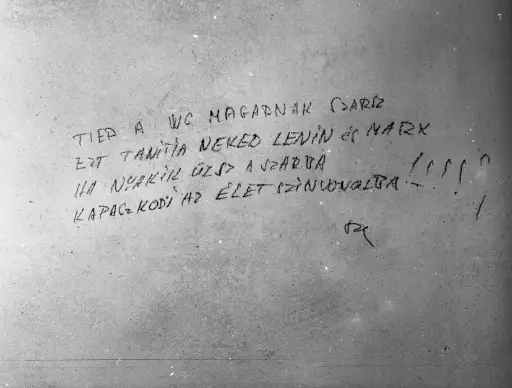 TIED A WC MAGADNAK SZARSZ
EZT TANÍTJA NEKED LENIN és MARX
HA NYAKIK ÜLSZ A SZARBA
KAPASZKODJ AZ ÉLETSZINVONALBA.